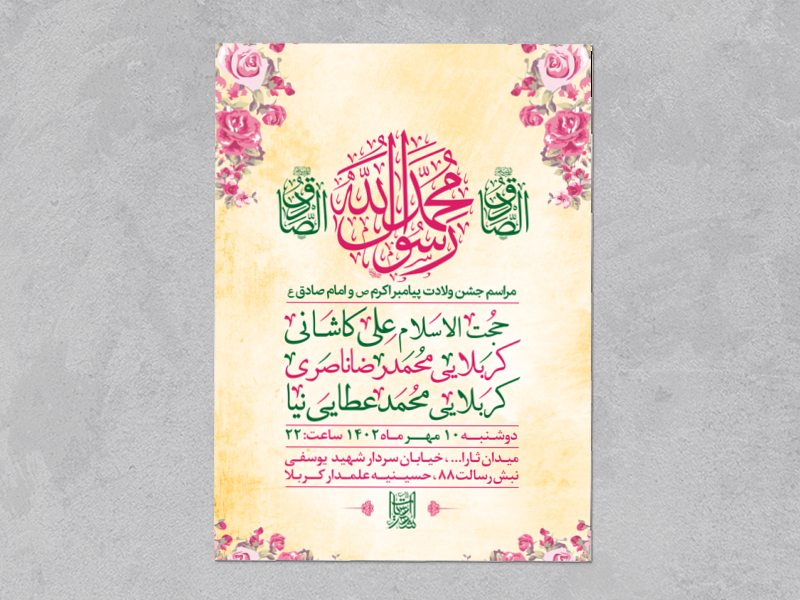 محمد رسول الله
الصادق
الصادق
مراسم جشن ولادت پیامبر اکرم ص و امام صادق ع
حجت الاسلام علی کاشانی
کربلایی محمدرضا ناصری
کربلایی محمد عطایی نیا
دوشنبه ۱۰ مهر ماه ۱۴۰۲ ساعت: ۲۲
میدان ثارا...، خیابان سردار شهید یوسفی
نبش رسالت ۸۸، حسینیه علمدار کربلا